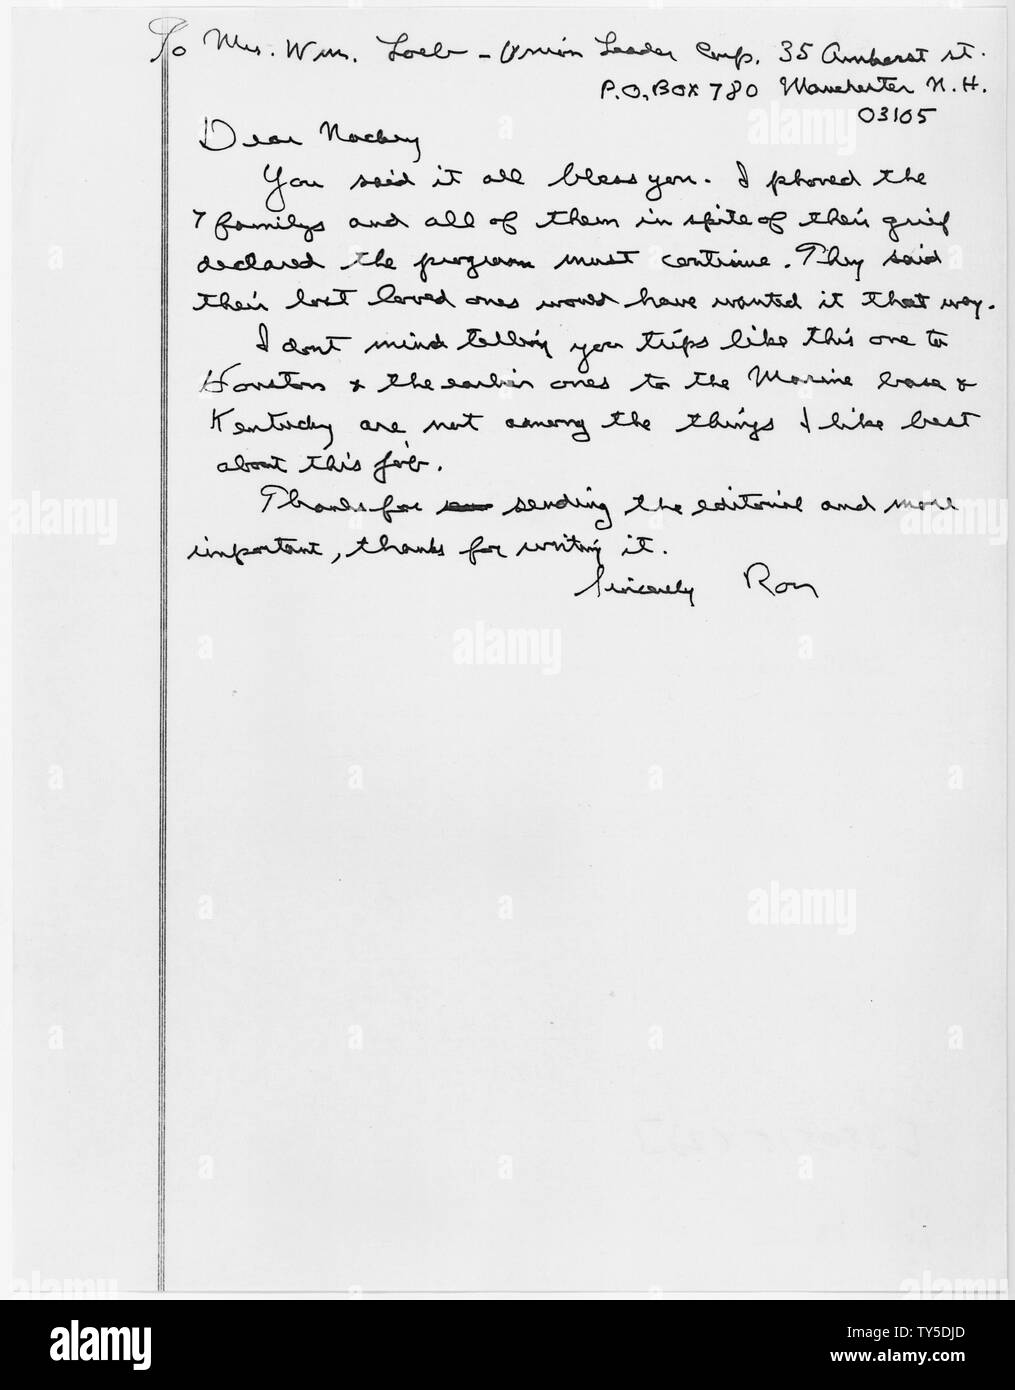 To Mrs. Wm. Loeb - Union Leader Corp. 35 Amherst St.
P.O. Box 780 Manchester N.H.
03105
Dear Nackey
You said it all bless you. I phoned the
7 familys and all of them in spite of their grief
declared the program must continue. They said
their lost loved ones would have wanted it that way.
I dont mind telling you trips like this one to
Houston & the earlier ones to the Marine base &
Kentucky are not among the things I like best
about this job.
Thanks for sending the editorial and more
important, thanks for writing it.
Sincerely Ron
alamy
alamy
TY5DJD
www.alamy.com